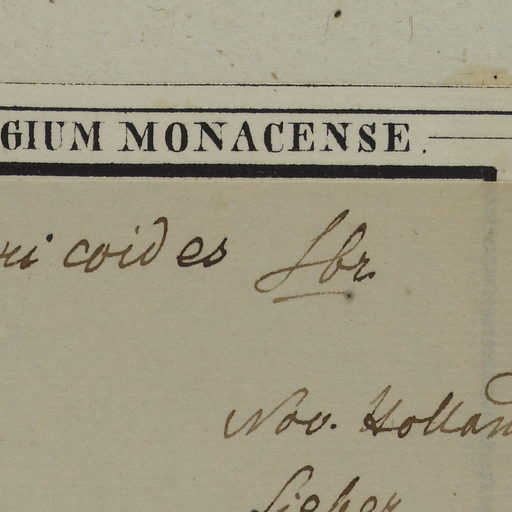 GIUM MONACENSE.
ricoides Sbr.
Nov. Hollan
Sieber